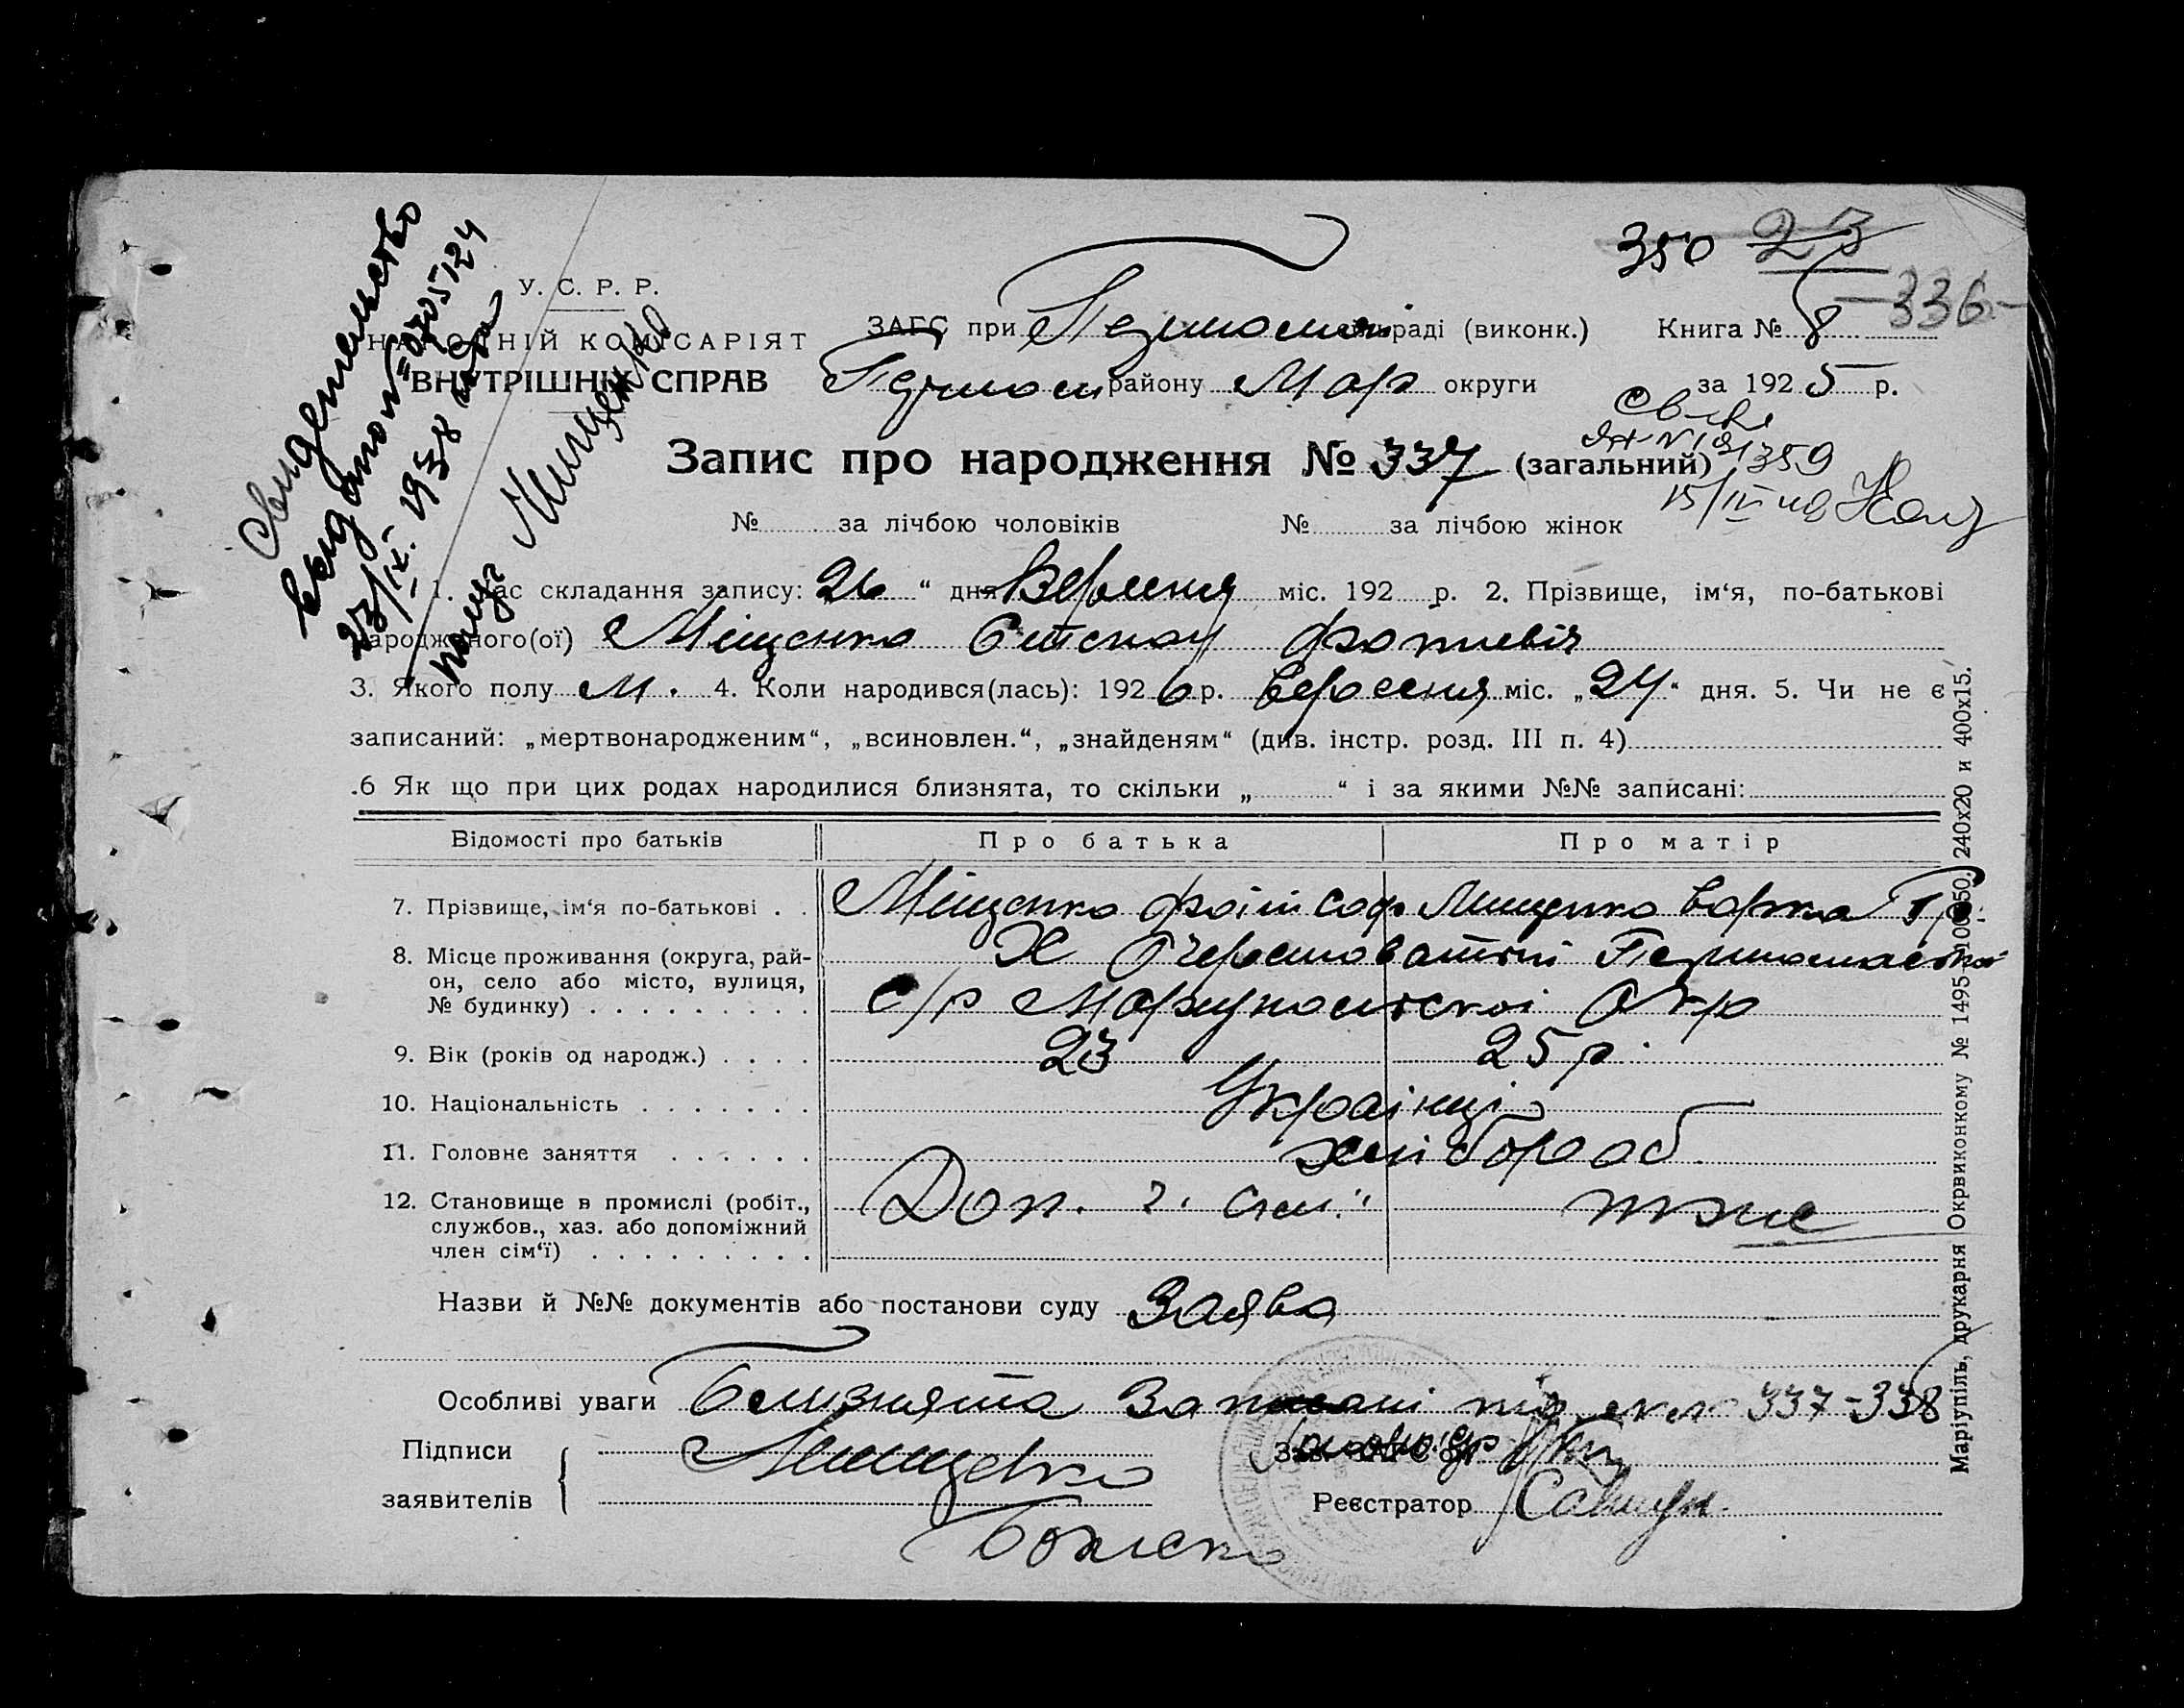 350 23
У. С. Р. Р.
-336-
НАРОДНІЙ КОМІСАРІЯТ
ВНУТРІШНІХ СПРАВ
ЗАГС при раді (виконк.) Книга № 8
району Мар округи за 1925 р.
Свидетельство
выдано
23/IX. 1938 года
Мищенко
Запис про народження № 337 (загальний)
№ за лічбою чоловіків № за лічбою жінок
1. Час складання запису: „26“ дня Вересня міс. 192 р. 2. Прізвище, ім‘я, по-батькові
народженого(ої) Міщенко
3. Якого полу М. 4. Коли народився(лась): 1926 р. Вересня міс. „24“ дня. 5. Чи не є
записаний: „мертвонародженим“, „всиновлен.“, „знайденям“ (див. інстр. розд. III п. 4)
.6 Як що при цих родах народилися близнята, то скільки „ “ і за якими №№ записані:
Відомості про батьків Про батька Про матір
7. Прізвище, ім‘я по-батькові . . Міщенко Мищенко Варка Гр
8. Місце проживання (округа, рай-
он, село або місто, вулиця,
№ будинку) . . . . . . . . . Х
с/р Окр
9. Вік (років од народж.) . . . . 23 25 р.
10. Національність . . . . . . . Українці
11. Головне заняття . . . . . . хлібороб
12. Становище в промислі (робіт.,
службов., хаз. або допоміжний
член сім‘ї) . . . . . . . . . Доп. ч. сем. тоже
Назви й №№ документів або постанови суду Заява
Особливі уваги Близнята Записані під 337-338
Підписи
заявителів Мищенко
Реєстратор
Маріупіль, друкарня Окрвиконкому № 1495 240х20 и 400х15.